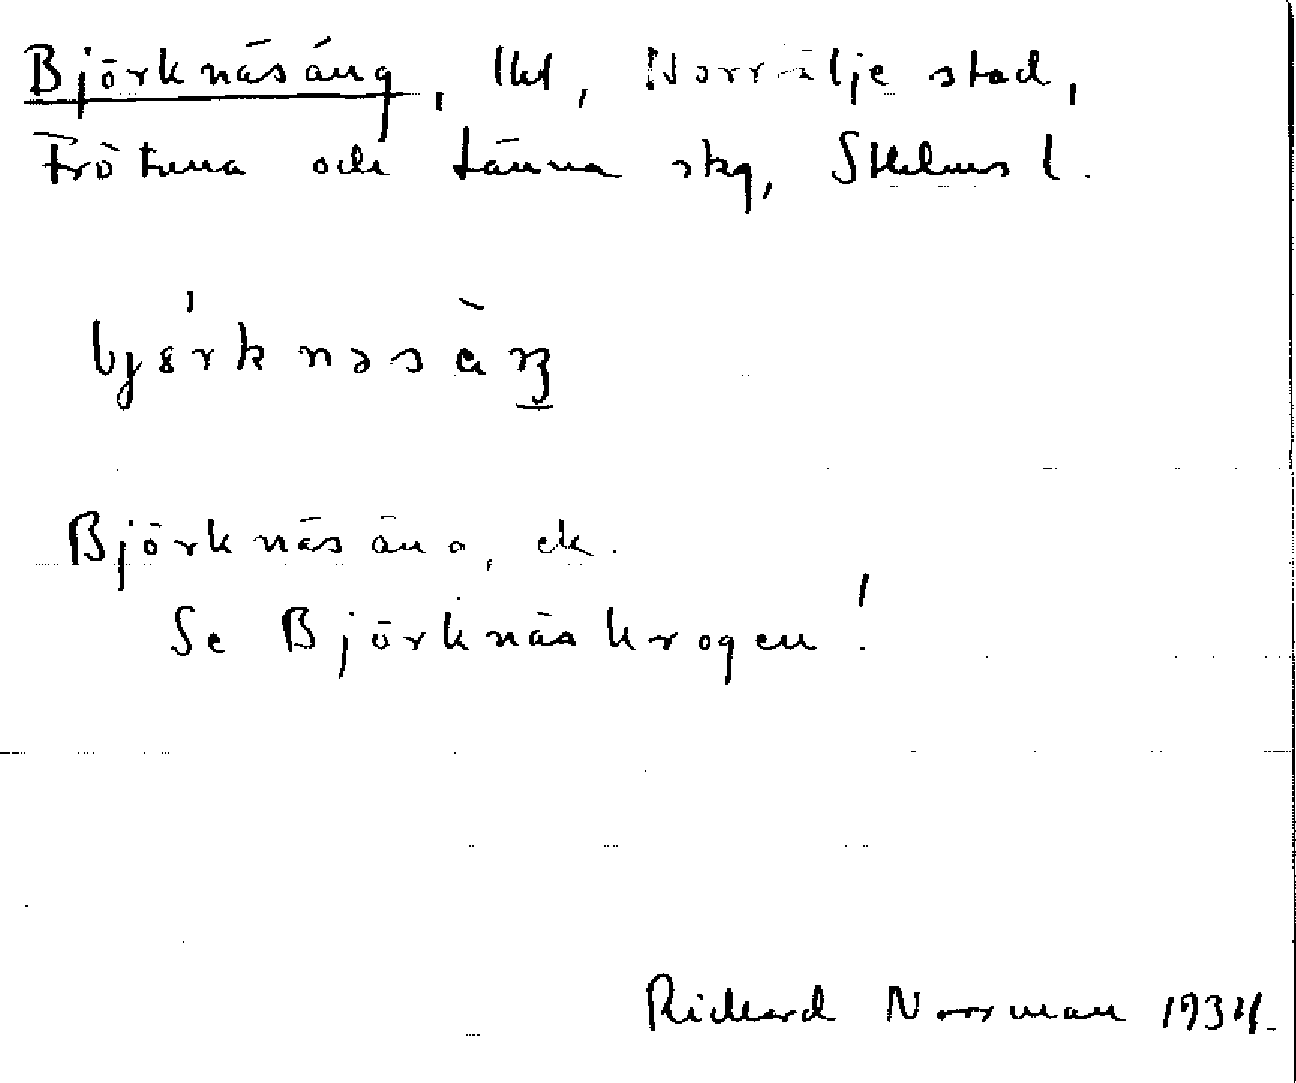 Björknäsäng, lht, Norrtälje stad,
Frötuna och Länna skg, Sthlms l.
bjørknəsäŋ
Björknäsäng, ek.
Se Björknäskrogen!
Rickard Norrman 1934.